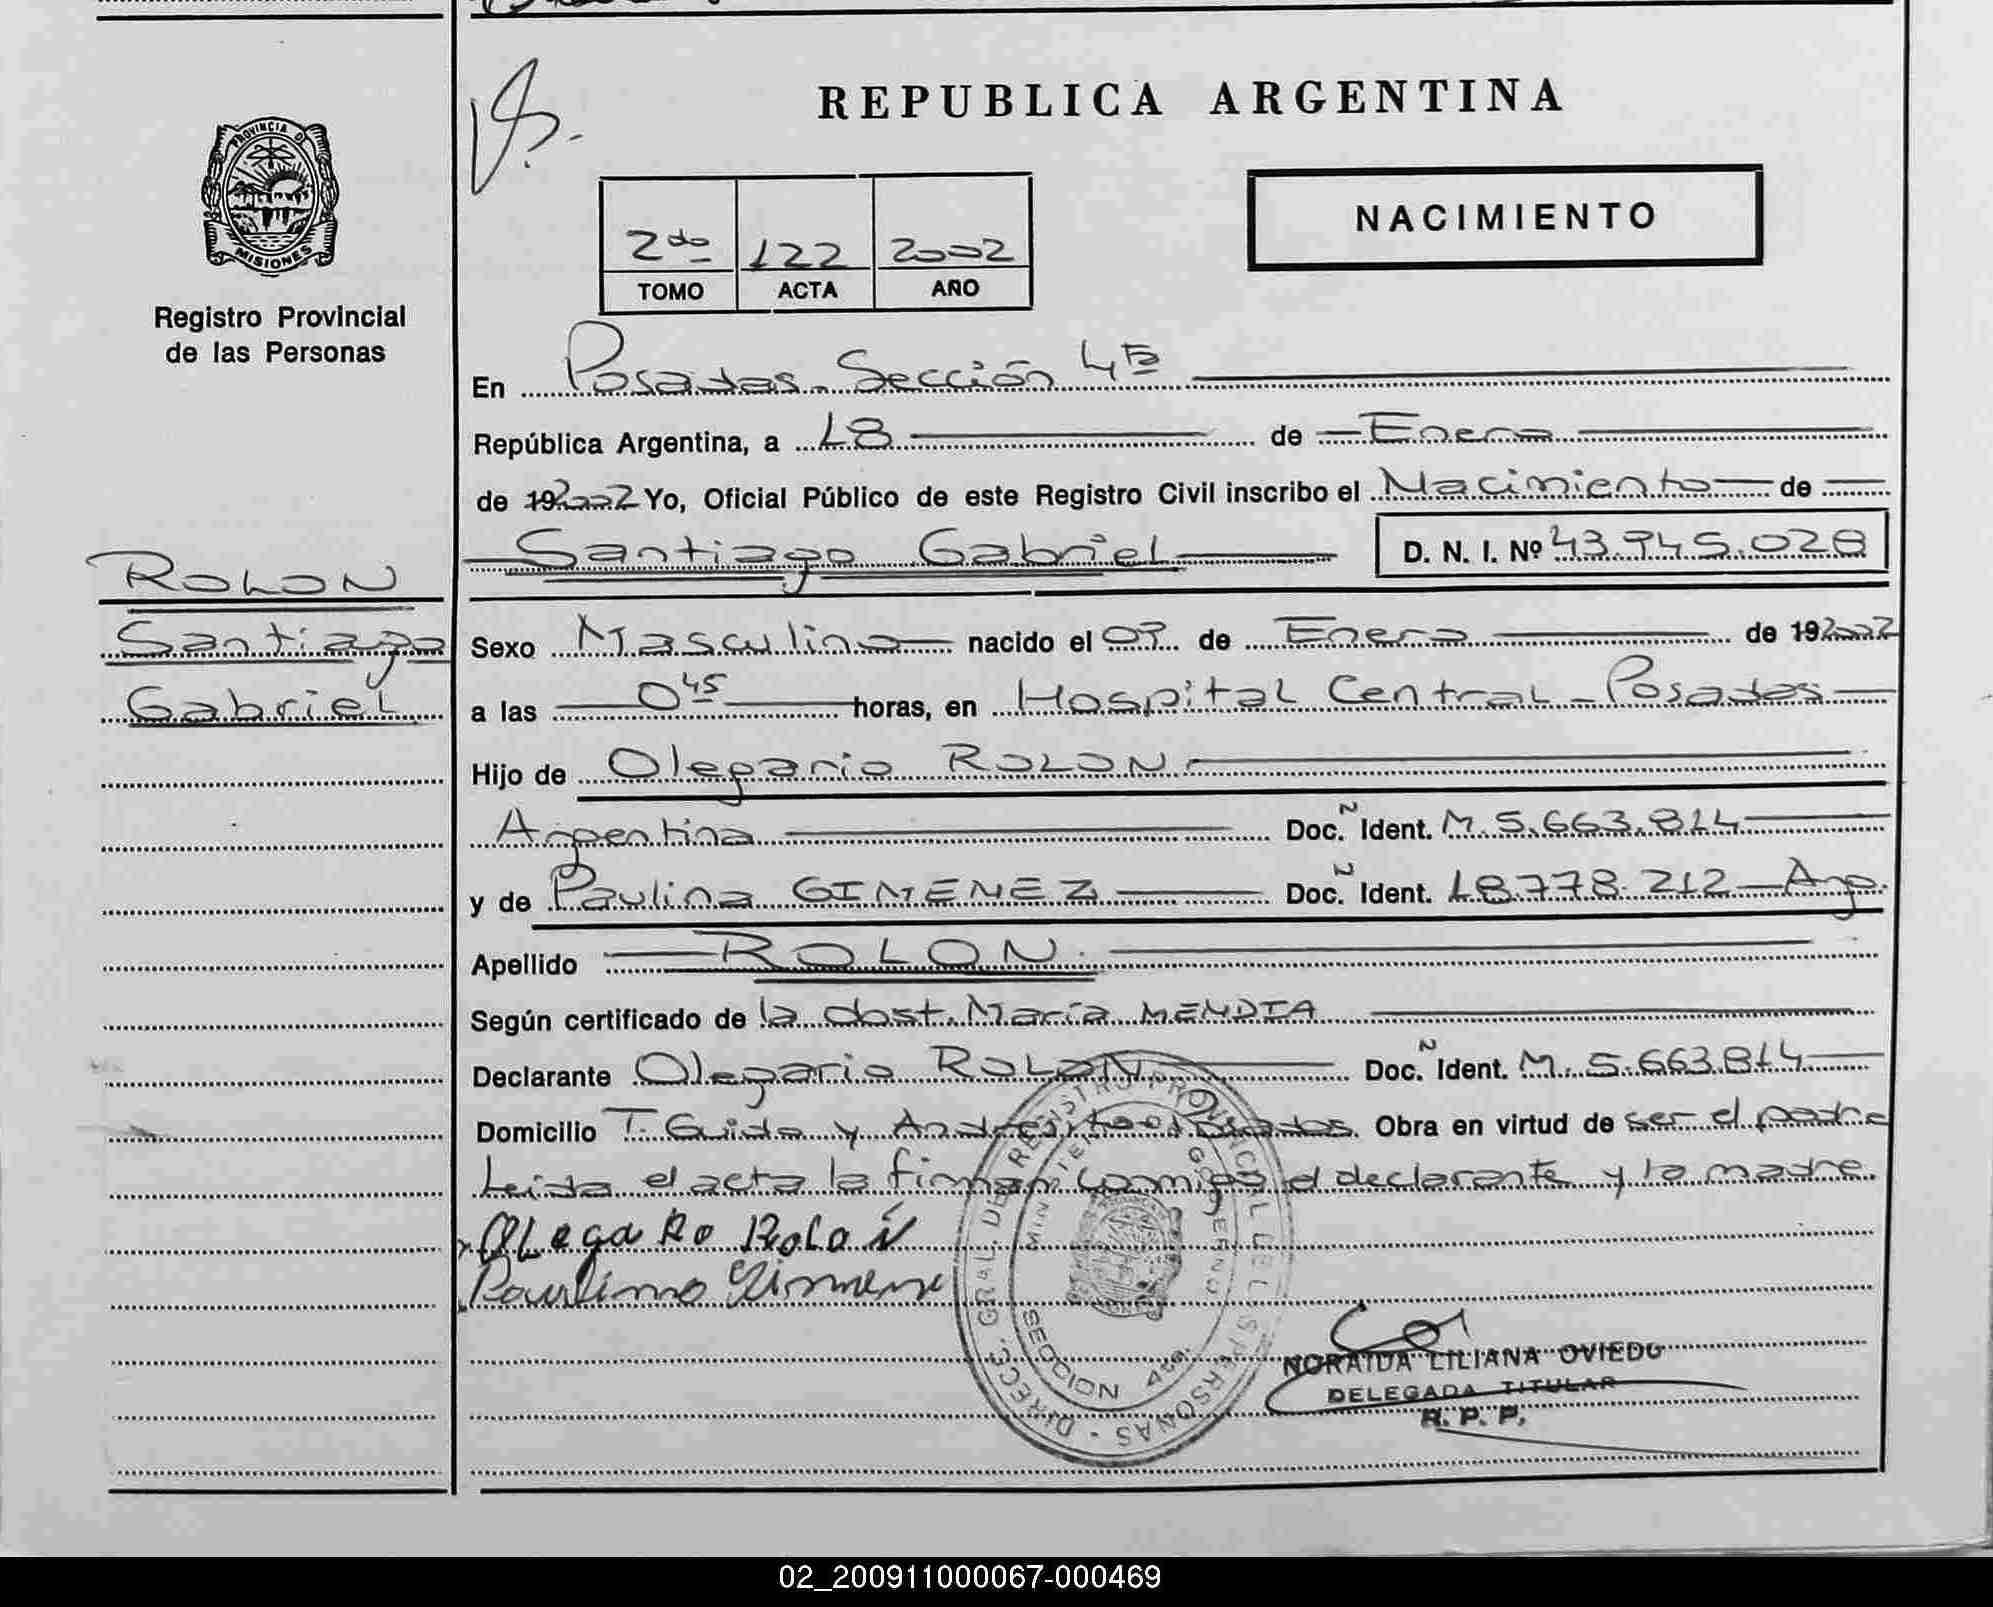 REPUBLICA ARGENTINA
PROVINCIA DE
MISIONES
Registro Provincial
de las Personas
NACIMIENTO
2do 122 2002
TOMO ACTA AÑO
En Posadas - Sección 4ta
República Argentina, a 18 de Enero
de 19 2002 Yo, Oficial Público de este Registro Civil inscribo el Nacimiento de
Santiago Gabriel D. N. I. Nº 43.945.028
ROLON
Santiago
Gabriel
Sexo Masculino nacido el 07 de Enero de 19 2002
a las 0 45 horas, en Hospital Central - Posadas
Hijo de Olegario ROLON
Argentina Doc. Ñ Ident. M. 5.663.814
y de Paulina GIMENEZ Doc. Ñ Ident. 18.778.212 - Arg.
Apellido ROLON
Según certificado de la obst. María MENDIA
Declarante Olegario ROLON Doc. Ñ Ident. M. 5.663.814
Domicilio T. Guido y Andresito - Posadas. Obra en virtud de ser el padre
Leida el acta la firman conmigo el declarante y la madre.
OLegaRo RoLoN
Paulina Gimenez
DIRECC. GRAL. DEL REGISTRO PROVINCIAL DE LAS PERSONAS
MINISTERIO GOBIERNO
SECCION 4ta.
NORAIDA LILIANA OVIEDO
DELEGADA TITULAR
R. P. P.
02_200911000067-000469